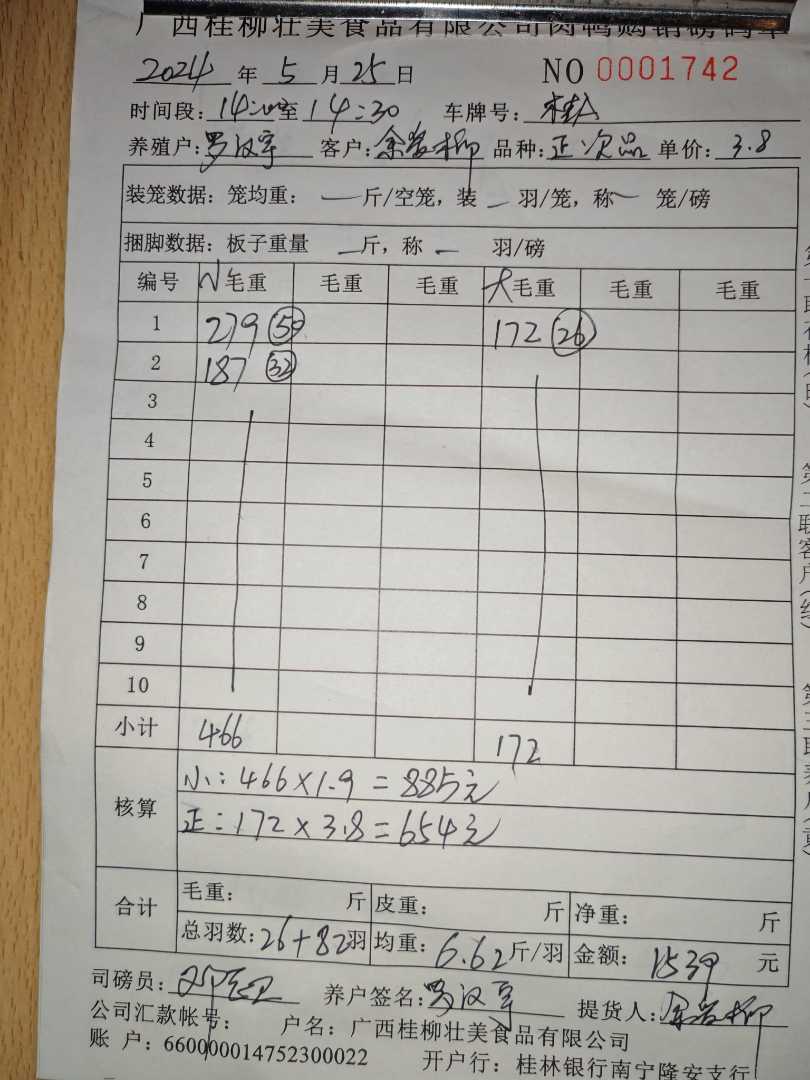 广西桂柳壮美食品有限公司肉鸭购销磅码单
2024 年 5 月 25 日 NO 0001742
时间段: 14:00 至 14:30 车牌号:
养殖户: 罗汉宇 客户: 余 柳 品种: 正次品 单价: 3.8
装笼数据: 笼均重: — 斤/空笼, 装 — 羽/笼, 称 — 笼/磅
捆脚数据: 板子重量 — 斤, 称 — 羽/磅
编号 小毛重 毛重 毛重 大毛重 毛重 毛重
1 279 (50) 172 (26)
2 187 (32)
3
4
5
6
7
8
9
10
小计 466 172
核算 小: 466×1.9=885元
正: 172×3.8=654元
合计 毛重: 斤 皮重: 斤 净重: 斤
总羽数: 26+82羽 均重: 6.62斤/羽 金额: 1539 元
司磅员: 养户签名: 罗汉宇 提货人: 余 柳
公司汇款帐号: 户名: 广西桂柳壮美食品有限公司
账 户: 660000014752300022 开户行: 桂林银行南宁隆安支行
第二联客户(红)